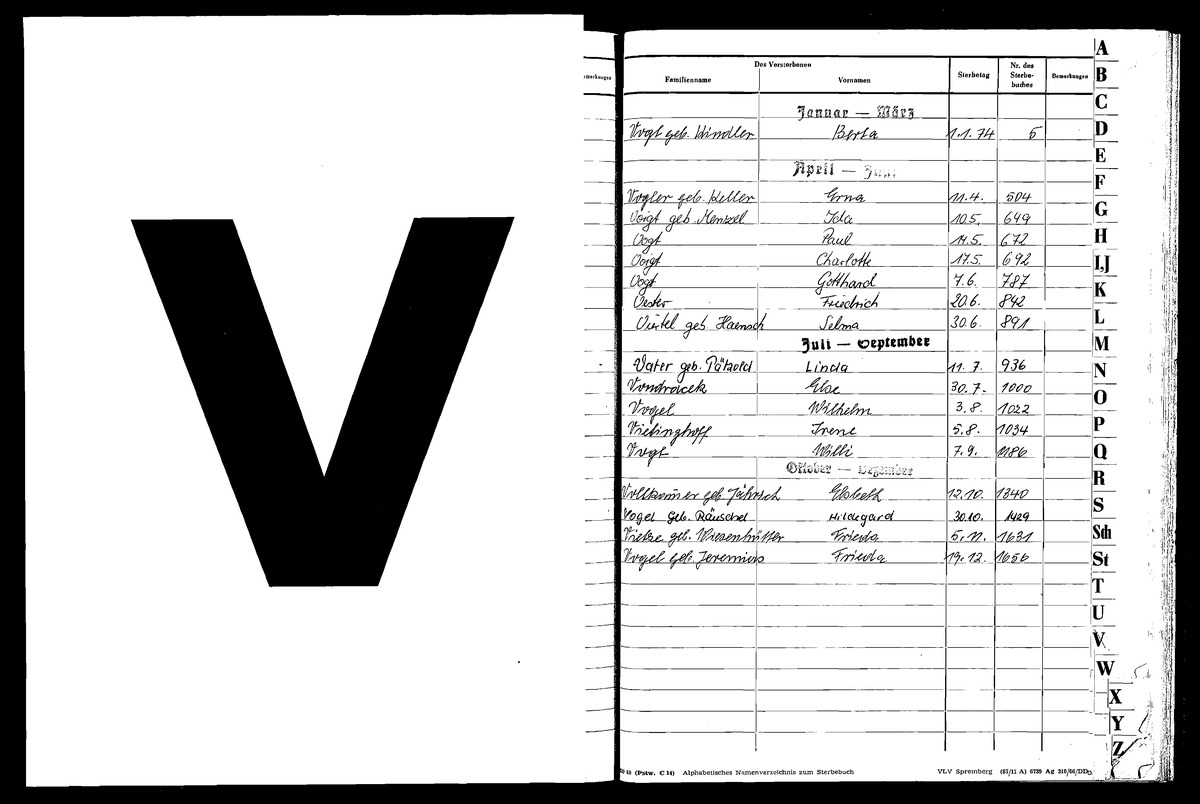 V
Des Verstorbenen
Familienname Vornamen Sterbetag Nr. des Sterbe- buches Bemerkungen
Januar — März
Vogt geb. Kindler Berta 1.1.74 5
April — Juni
Vogler geb. Keller Erna 11.4. 504
Voigt geb. Menzel Ida 10.5. 649
Vogt Paul 14.5. 672
Voigt Charlotte 17.5. 692
Vogt Gotthard 7.6. 787
Vester Friedrich 20.6. 842
Viertel geb. Haensch Selma 30.6. 891
Juli — September
Vater geb. Pätzold Linda 11.7. 936
Vondracek Else 30.7. 1000
Vogel Wilhelm 3.8. 1022
Vietinghoff Irene 5.8. 1034
Vogt Willi 7.9. 1186
Oktober — Dezember
Vollkomer geb. Jährisch Elsbeth 12.10. 1340
Vogel geb. Räuschel Hildegard 30.10. 1429
Vietze geb. Wiesenhütter Frieda 5.11. 1631
Vogel geb. Jeremias Frieda 19.12. 1656
(Pstw. C 14) Alphabetisches Namenverzeichnis zum Sterbebuch VLV Spremberg (87/11 A) 6739 Ag 310/66/DDR
A
B
C
D
E
F
G
H
I,J
K
L
M
N
O
P
Q
R
S
Sch
St
T
U
V
W
X
Y
Z